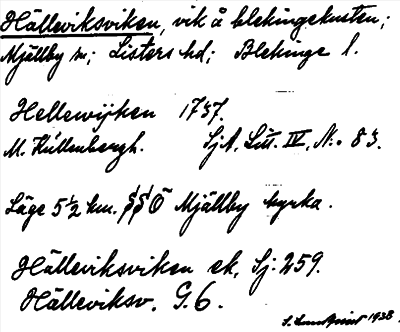 Hälleviksviken, vik å blekingekusten;
Mjällby sn; Listers hd; Blekinge l.
Hellewijken 1737.
M. Kullenbergh. SjA, Litt. IV, N:o 83.
Läge 5 1/2 km. SSO Mjällby kyrka.
Hälleviksviken ek, Sj: 259.
Hälleviksv. G.6.
1938.